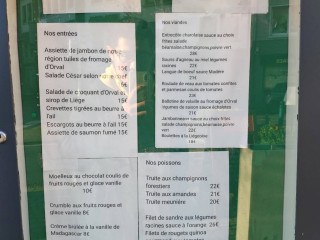 Nos entrées
Assiette :le jambon de notre
région tuiles de fromage
d'Orval 15€
Salade César selon 15€
Salade de croquant d'Orval et
sirop de Liège 15€
Crevettes tigrées au beurre à
l'ail 15€
Escargots au beurre à l'ail 15€
Assiette de saumon fumé 15€
Nos viandes
sauce au choix
frites salade
béarnaise,champignons,poivre vert
légumes
racines 22€
Langue de bœuf sauce Madère
21€
de veau aux tomates confites
et parmesan coulis de tomates
20€
de volaille au fromage d'Orval
légumes de saison sauce
21€
sauce au choix
frites salade
vert
Boulettes à la Liégeoise
Moelleux au chocolat coulis de
fruits rouges et glace vanille
10€
Crumble aux fruits rouges et
glace vanille 8€
Crème brulée à la vanille de
Madagascar 8€
Nos poissons
Truite aux champignons
forestiers 22€
Truite aux amandes 21€
Truite meunière 20€
Filet de sandre aux légumes
racines sauce à l'orange 26€
Filets de rougets quinoa